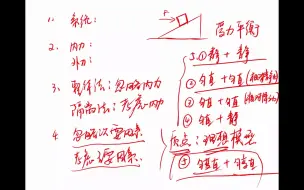 1. 系统:
2. 内力:
外力:
3. 整体法: 忽略内力
隔离法: 考虑内力
4. 忽略次要因素
考虑主要因素
F
受力平衡
① 静 + 静
② 匀直 + 匀直
③ 匀直 + 匀直
④ 匀直 + 静
质点: 理想模型
⑤